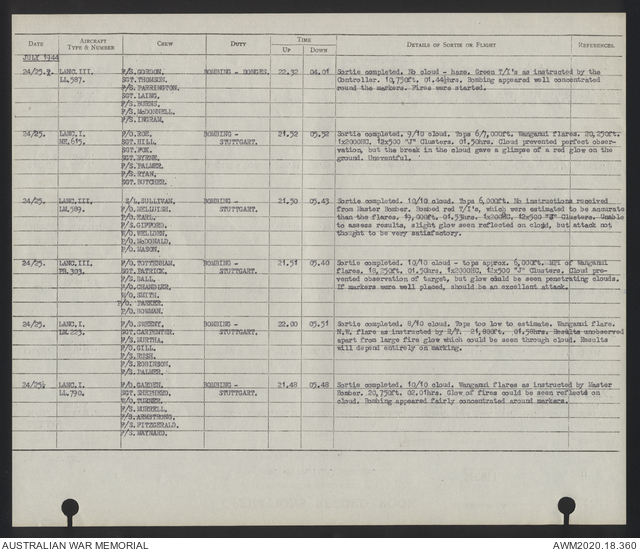 DATE AIRCRAFT TYPE & NUMBER CREW DUTY TIME UP DOWN DETAILS OF SORTIE OR FLIGHT REFERENCES.
JULY 1944
24/25. LANC.III. F/S.GORDON, BOMBING - DONGES. 22.32 04.01 Sortie completed. No cloud - haze. Green T/I's as instructed by the
LL.587. SGT.THOMSON. Controller. 10,750ft. 01.44½hrs. Bombing appeared well concentrated
F/S.FARRINGTON. round the markers. Fires were started.
SGT.LAING.
F/S.BURNS.
F/S.McDONNELL.
F/S.INGRAM.
24/25. LANC.I. F/O.ROE, BOMBING - 21.52 05.52 Sortie completed. 9/10 cloud. Tops 6/7,000ft. Wanganui flares. 20,250ft.
ME.615. SGT.HILL. STUTTGART. 1x2000HC. 12x500 "J" Clusters. 01.50hrs. Cloud prevented perfect obser-
SGT.FOX. vation, but the break in the cloud gave a glimpse of a red glow on the
SGT.BYRNE. ground. Uneventful.
F/S.PALMER.
F/S.RYAN.
SGT.BUTCHER.
24/25. LANC.III. S/L.SULLIVAN. BOMBING - 21.50 05.43 Sortie completed. 10/10 cloud. Tops 6,000ft. No instructions received
LM.589. F/O.MELLUISH. STUTTGART. from Master Bomber. Bombed red T/I's, which were estimated to be accurate
P/O.EARL. than the flares. 19,000ft. 01.53hrs. 1x2000HC. 12x500 "J" Clusters. Unable
F/S.GIFFORD. to assess results, slight glow seen reflected on cloud, but attack not
F/O.WELLDEN. thought to be very satisfactory.
P/O.McDONALD.
P/O.MASON.
24/25. LANC.III. F/O.TOTTENHAM. BOMBING - 21.51 05.40 Sortie completed. 10/10 cloud - tops approx. 6,000ft. MPI of Wanganui
PB.303. SGT.PATRICK. STUTTGART. flares. 18,250ft. 01.50hrs. 1x2000HC. 12x500 "J" Clusters. Cloud pre-
F/S.BALL. vented observation of target, but glow could be seen penetrating clouds.
F/O.CHANDLER. If markers were well placed, should be an excellent attack.
W/O.SMITH.
F/O. PARKER.
P/O.BOWMAN.
24/25. LANC.I. F/O.SWEENY. BOMBING - 22.00 05.51 Sortie completed. 8/10 cloud. Tops too low to estimate. Wanganui flare.
LM.223. SGT.CARPENTER. STUTTGART. N.W. flare as instructed by R/T. 21,800ft. 01.58hrs. Results unobserved
F/S.MURTHA. apart from large fire glow which could be seen through cloud. Results
F/O.GILL. will depend entirely on marking.
F/S.RUSH.
F/S.ROBINSON.
F/S.PALMER.
24/25. LANC.I. F/S.GARDEN. BOMBING - 21.48 05.48 Sortie completed. 10/10 cloud. Wanganui flares as instructed by Master
LL.790. SGT.SHEPHERD. STUTTGART. Bomber. 20,750ft. 02.01hrs. Glow of fires could be seen reflects on
W/O.TURNER. cloud. Bombing appeared fairly concentrated around markers.
F/S.MURRELL.
F/S.ARMSTRONG.
F/S.FITZGERALD.
F/S.MAYNARD.
AUSTRALIAN WAR MEMORIAL AWM2020.18.360